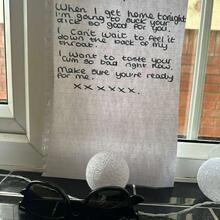 When I get home tonight
I'm going to suck your
dick so good for you.
I can't wait to feel it
down the back of my
throat.
I want to taste your
cum so bad right now,
Make sure you're ready
for me.
x x x x x x.